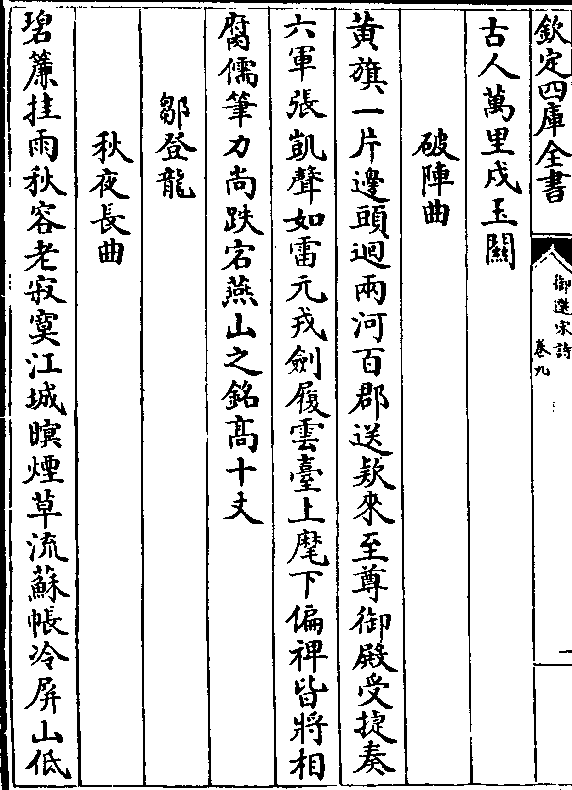 欽定四庫全書
御選宋詩
卷九
一
古人萬里戍玉關
破陣曲
黄旗一片邊頭迴兩河百郡送欵來至尊御殿受捷奏
六軍張凱聲如雷元戎劍履雲臺上麾下偏裨皆將相
腐儒筆力尚跌宕燕山之銘髙十丈
鄒登龍
秋夜長曲
碧簾挂雨秋容老寂寞江城暝煙草流蘇帳冷屏山低